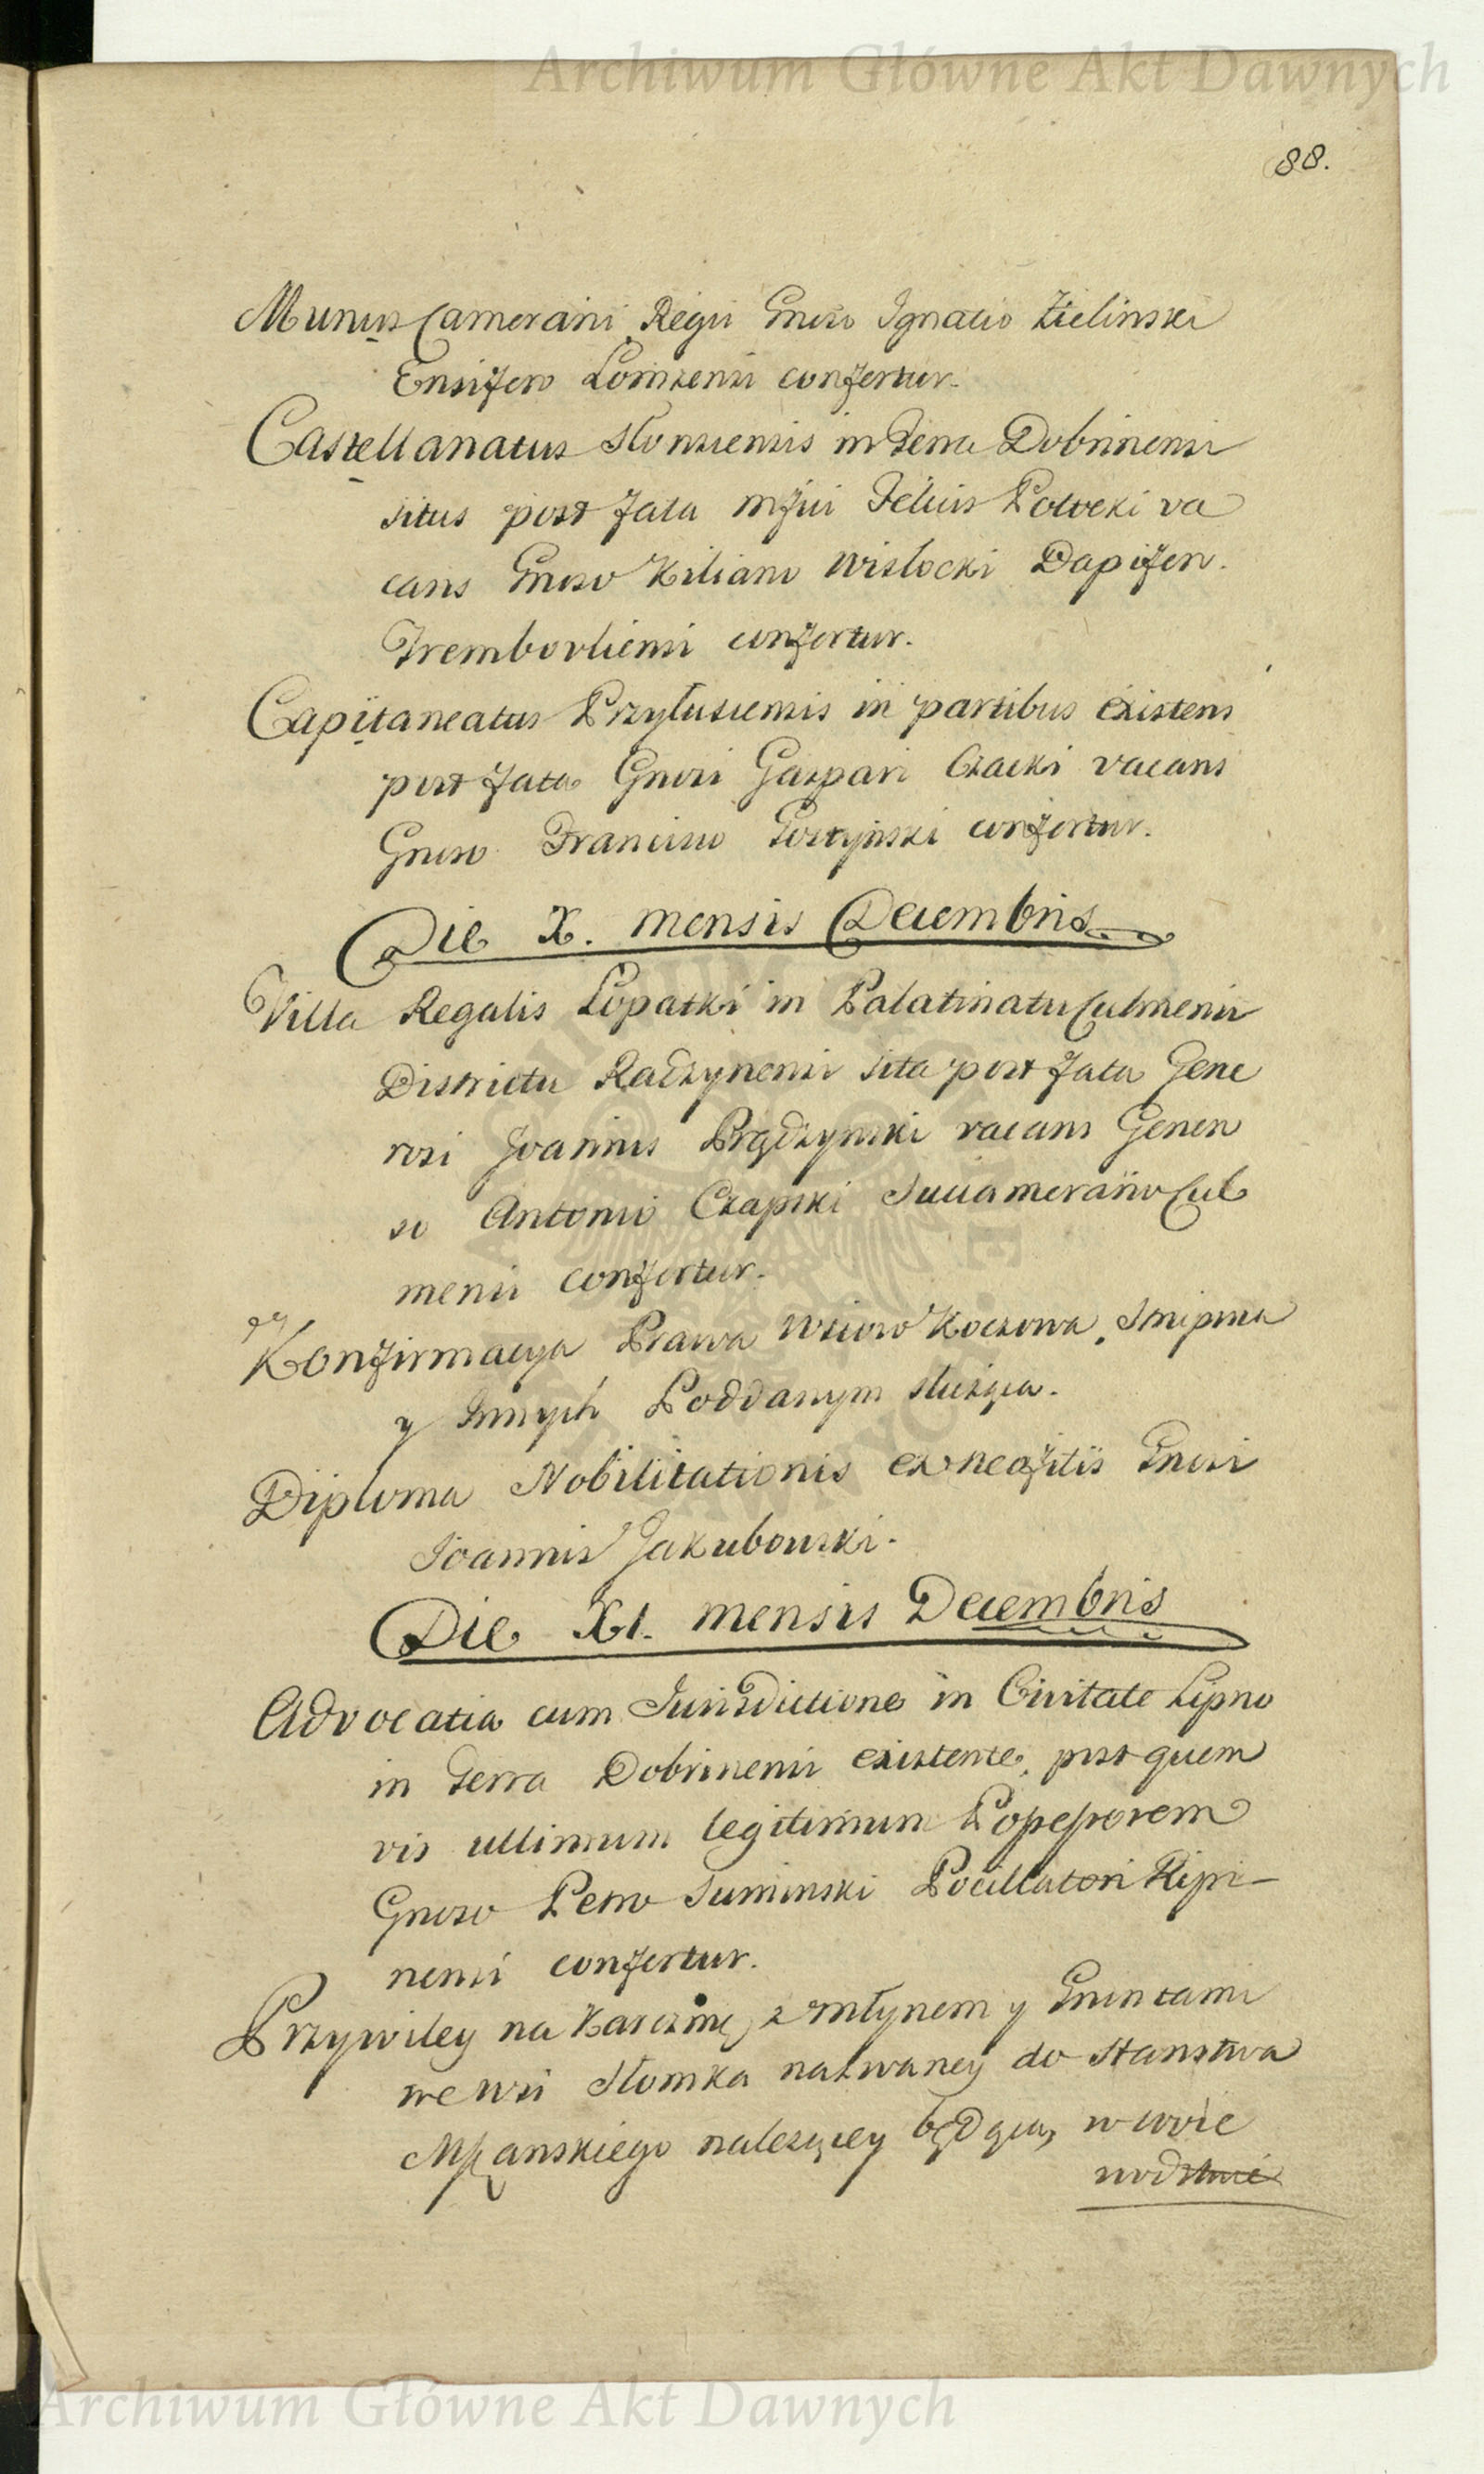 Archiwum Główne Akt Dawnych
88.
Munus Camerarii Regii Gnoso Ignatio Zielinski
Ensifero Lomzensi confertur.
Castellanatus Słonsiensis in Terra Dobrinensi
situs post fata mfici Felicis Potocki va
cans Gnoso Kiliano Wislocki Dapifero
Trembovliensi confertur.
Capitaneatus Przyłusiensis in partibus existens
post fata Gnosi Gaspari Czacki vacans
Gnoso Francisco confertur.
Die X. mensis Decembris
Villa Regalis Łopatki in Palatinatu Culmensi
Districtu Radzynensi sita post fata Gene
rosi Joannis Prądzynski vacans Genero
so Antonio Czapski Succamerario Cul
mensi confertur.
Konfirmacya Prawa Wsiow Koczowa, Snipina
y Innych Poddanym słuząca.
Diploma Nobilitationis ex neofitis Gnosi
Joannis Jakubowski.
Die XI. mensis Decembris
Advocatia cum Jurisdictione in Civitate Lipno
in Terra Dobrinensi existente, post quem
vis ultimum legitimum Possessorem
Gnoso Petro Suminski Pocillatori Ripi-
nensi confertur.
Przywiley na Karczmę z młynem y Gruntami
we wsi Słomka nazwaney do Starostwa
Mszanskiego nalezącey będącą, w woie
wodztwie
Archiwum Główne Akt Dawnych